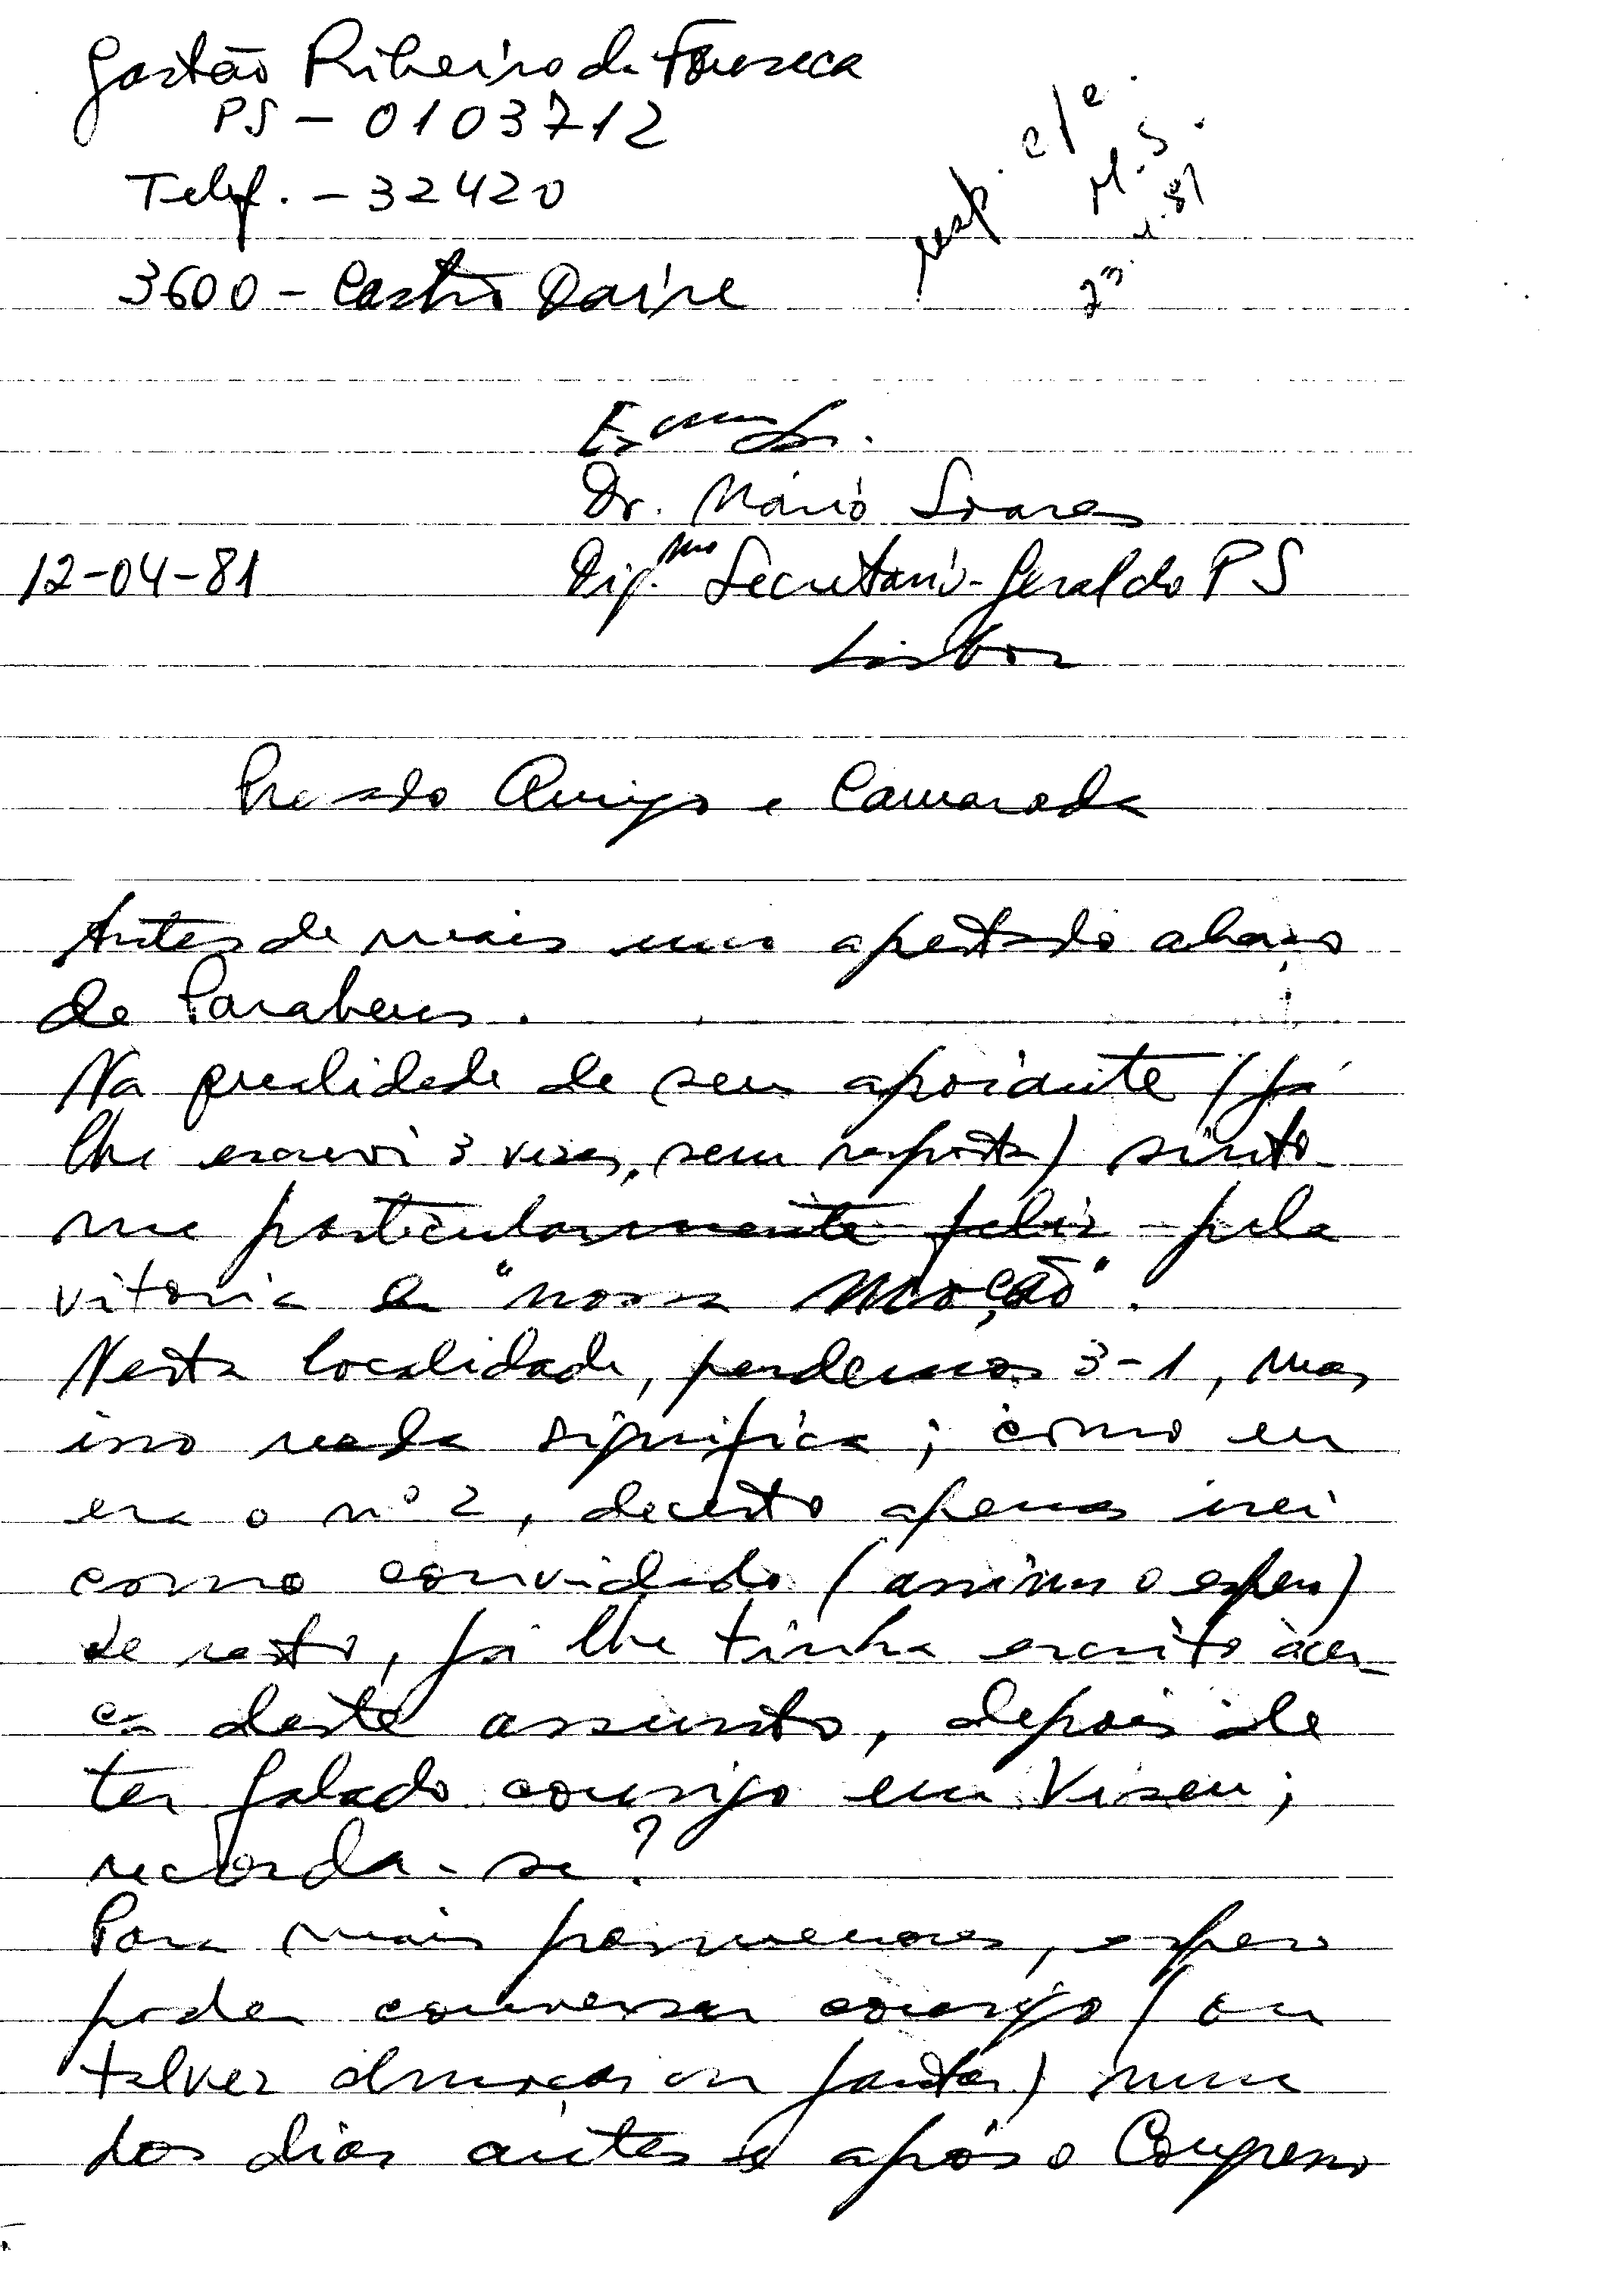 Gastão Ribeiro da Fonseca
PS - 0103712
Telef. - 32420
3600 - Castro Daire
resp. c/c.
M.S.
23.4.81
Exmo Sr.
Dr. Mário Soares
12-04-81
Dig.mo Secretário-Geral do PS
Lisboa
Prezado Amigo e Camarada
Antes de mais um apertado abraço
de Parabens.
Na qualidade de seu apoiante (já
lhe escrevi 3 vezes, sem resposta) sinto
me particularmente feliz pela
vitoria da "nossa Moção".
Nesta localidade, perdemos 3-1, mas
isso nada significa; como eu
era o nº 2, decerto apenas irei
como convidado (assim o espero)
de resto, já lhe tinha escrito àcer-
ca deste assunto, depois de
ter falado consigo em Viseu;
recorda-se?
Para mais pormenores, espero
poder conversar consigo (ou
talvez almoçar ou jantar) num
dos dias antes e após o Congresso